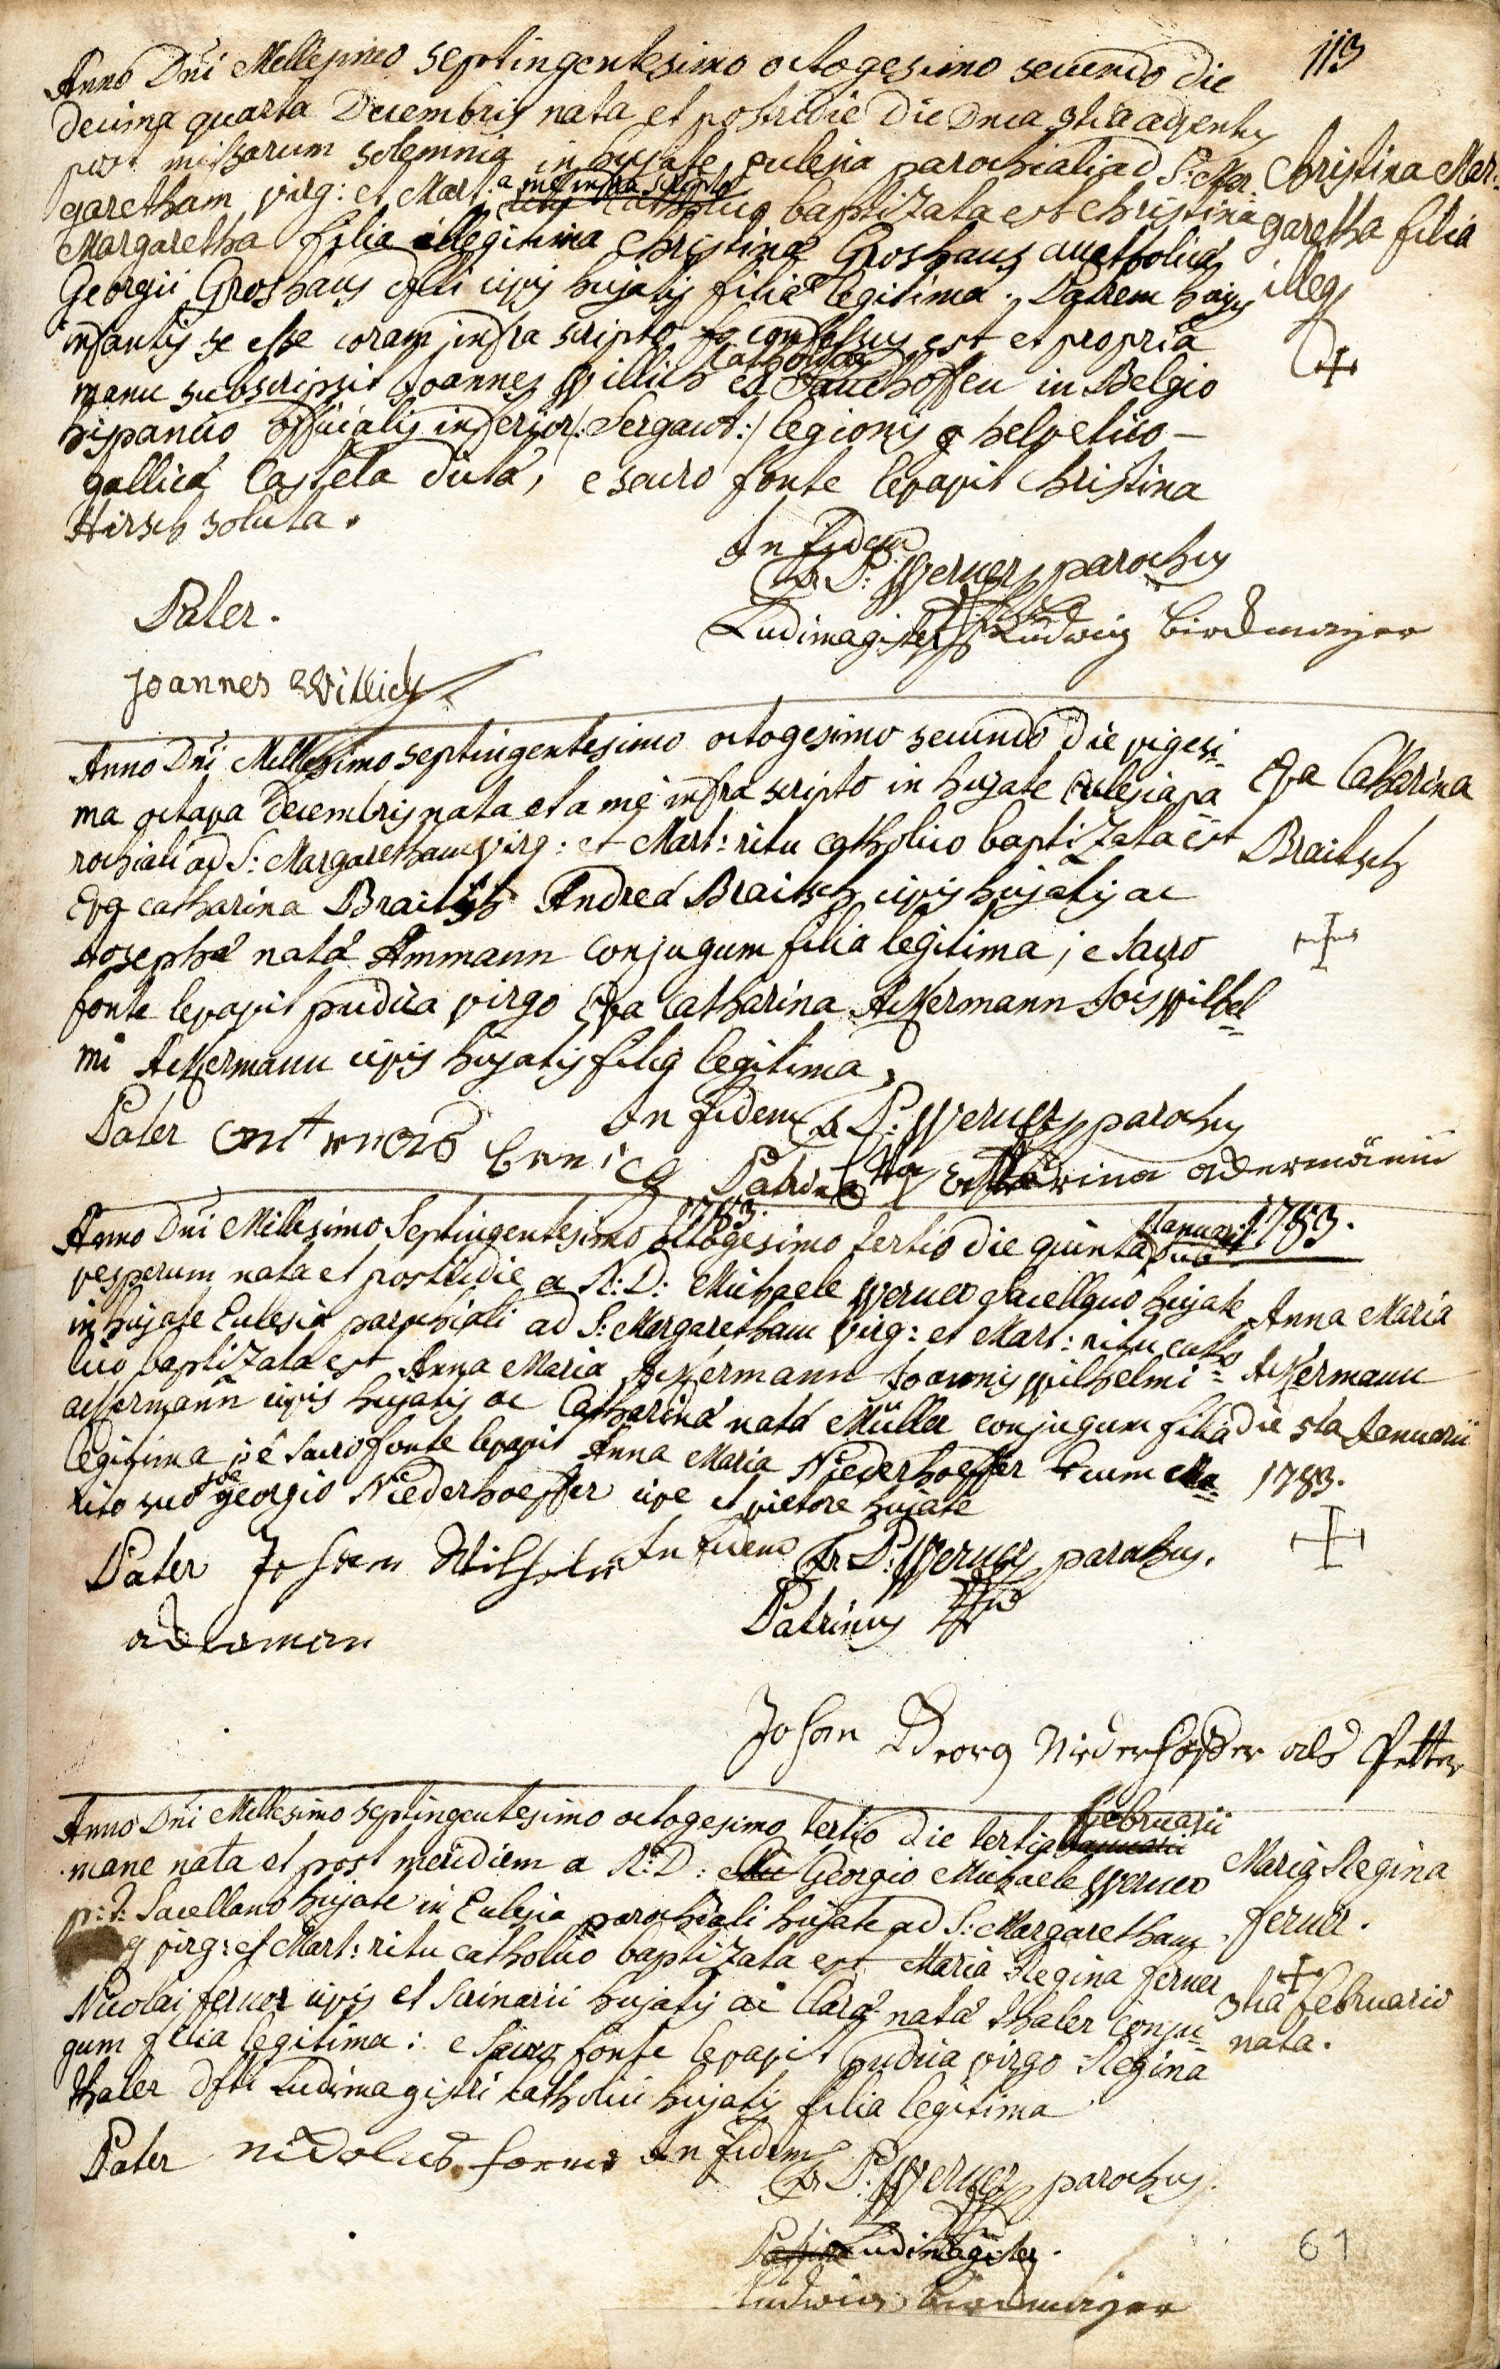 113
Anno Dñi Millesimo septingentesimo octogesimo secundo die
decima quarta Decembris nata et postridie die Dnica 3tia adventus
post missarum solemnia in hujate eclesia parochiali ad S: Mar
garetham virg: et Mart: a me infra scripto baptizata est Christina
Margaretha filia illegitima Christinæ Groshans catholicæ
Georgii Groshans civis hujatis filiæ legitimæ. Patrem hujus
infantis se esse coram infra scripto confessus est et propria
manu subscripsit Joannes Willich ex in Belgio
hispanico officialis inferior /: Sergant :/ legionis helvetico –
gallicæ Castela dictæ, e sacro fonte levavit Christina
Hirsch soluta.
Christina Mar:
garetha filia
illeg
In fidem
P: Werner parochus
Ludimagister Ludwig Birckmayer
Pater.
Joannes Willich
Anno Dñi Millesimo septingentesimo octogesimo secundo die vigesi=
ma octava Decembris nata et a me infra scripto in hujate eclesia pa
rochiali ad S: Margaretham virg: et Mart: ritu catholico baptizata est
Eva catharina Braitsch Andreæ Braitsch civis hujatis ac
Josephæ natæ Ammann conjugum filia legitima, e sacro
fonte levavit pudica virgo Eva Catharina Ackermann Jois Wilhel=
mi Ackermann civis hujatis filia legitima,
Eva Catharina
Braitsch
In fidem P: Werner parochus
Pater
Patrina Eva Cattarina ackermänin
1783.
Anno Dñi Millesimo Septingentesimo octogesimo tertio die quinta Januarii sub 1783.
vesperum nata et postridie a R: D: Michaele Werner sacellano hujate
in hujate Eclesia parochiali ad S: Margaretham virg: et Mart: ritu catho
lico baptizata est Anna Maria Ackermann Joannis Wilhelmi =
ackermann civis hujatis ac Catharinæ natæ Müller conjugum filia
legitima, e sacro fonte levavit Anna Maria Niederhoeffer cum Ma=
rito suo Joe georgio Niederhoeffer cive et vietore hujate
Anna Maria
Ackermann
die 5ta Januarii
1783.
Pater Johan Wilhelm In fidem P: Werner parochus.
ackerman
Patrinus
Johan Georg Niederhöffer als Petter
Anno Dñi Millesimo septingentesimo octogesimo tertio die tertia Januarii Februarii
mane nata et post meridiem a R: D: Georgio Michaele Werner
p: t: Sacellano hujate in Eclesia parochiali hujate ad S: Margaretham
virg: et Mart: ritu catholico baptizata est Maria Regina ferner
Nicolai ferner civis et scrinarii hujatis ac Claræ natæ Thaler conju=
gum filia legitima: e Sacro fonte levavit pudica virgo Regina
thaler dfti Ludimagistri catholici hujatis filia legitima
Maria Regina
ferner.
3tia Februario
nata.
Pater nickolus ferner In fidem
P: Werner parochus.
Ludimagister.
Ludwig Birckmayer
61